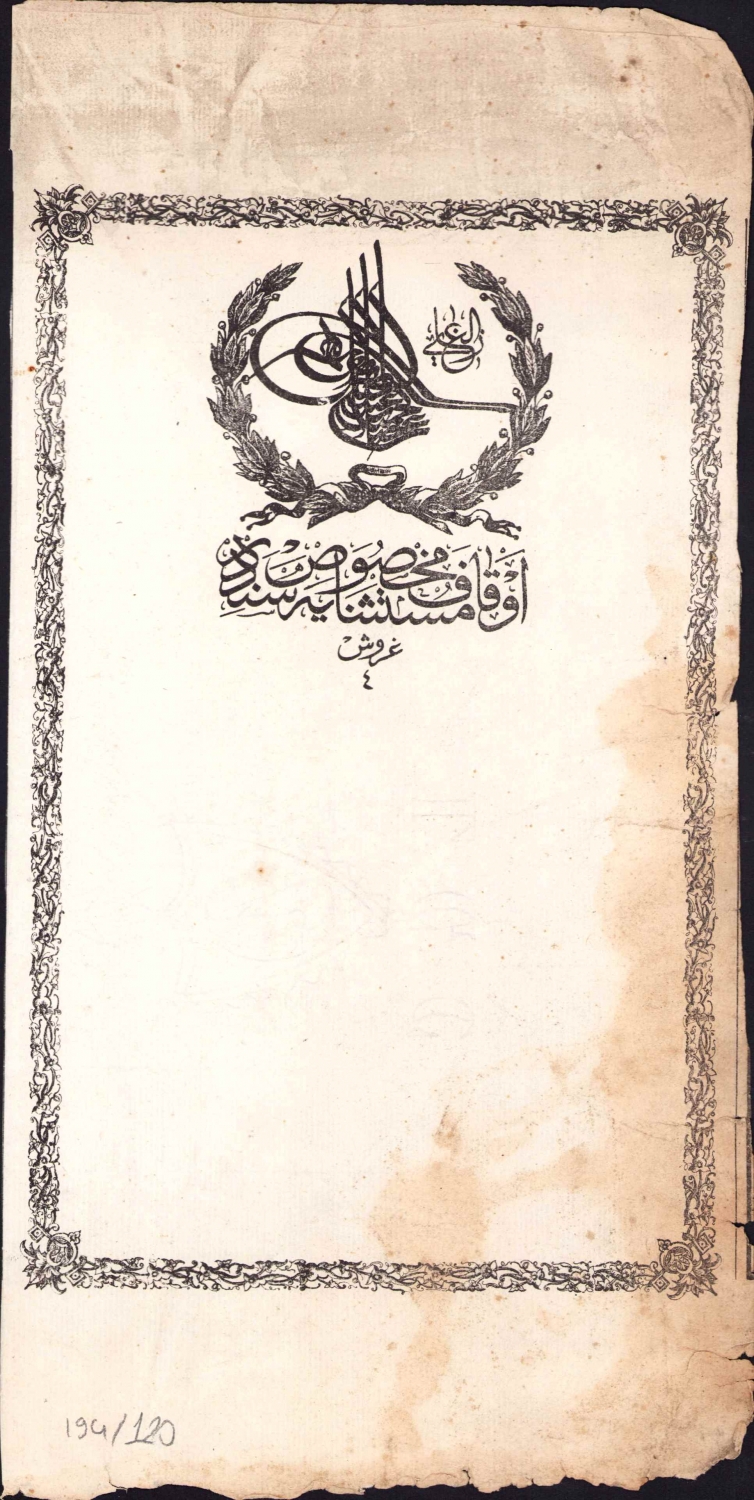 الغازي
اوقاف مستثنایه مخصوص سنددر
غروش
٤
194/120